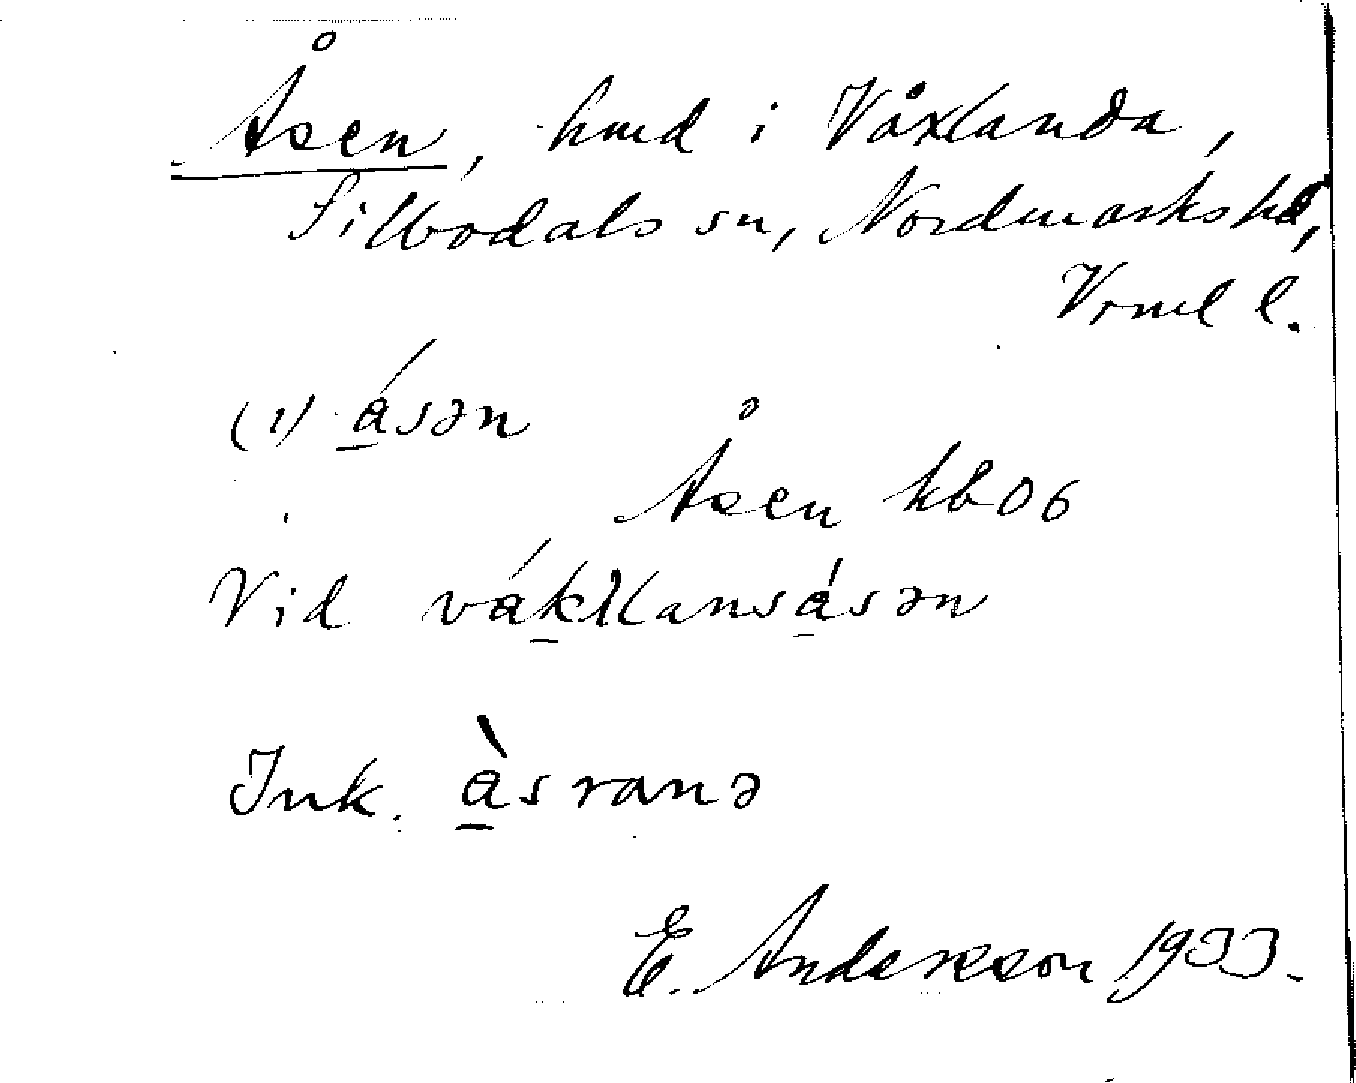 Åsen, hmd i Våxlanda,
Silbodals sn, Nordmarks hd,
Vrml l.
(1) á̱sən
Åsen kb 06
Vid váḵslansá̱sən
Ink. à̱sranə
E. Andersson 1933.